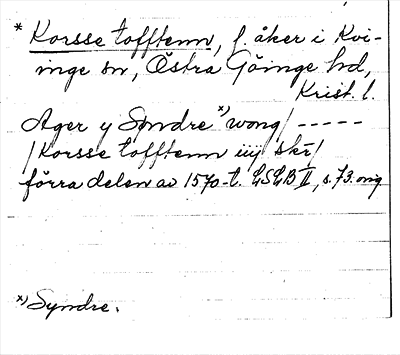 * Korsse tofftenn, f. åker i Kvi-
inge sn, Östra Göinge hd,
Krist. l.
Ager y Søndre x) wong / -----
/ Korsse tofftenn iiij skr /
förra delen av 1570-t. LSLB II, s. 73. orig
x) Syndre.